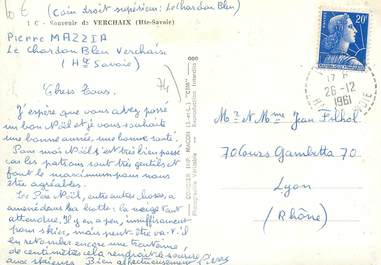 (Coin droit supérieur: Le Chardon Bleu)
Souvenir de VERCHAIX (Hte-Savoie)
Pierre MAZZIA
Le Chardon Bleu Verchaix
(Hte Savoie)
74
Chers tous.
J'espère que vous avez passé
un bon Noël et je vous souhaite
une bonne année, une bonne santé.
Pour moi Noël s'est très bien passé
car les patrons sont très gentils et
font le maximum pour nous
être agréables.
Le Père Noël, entre autres choses, a
amené dans sa hotte: la neige tant
attendue. Il y en a peu, insuffisamment
pour skier, mais peut être va-t-il
en retomber encore une trentaine
de centimètres cela rendrait le sourire
aux skieurs. Bien affectueusement Pierre
COMBIER IMP. MACON (S.-et-L.) "CIM"
20F
26-12
1961
Mr et Mme Jean Filhol
70 Cours Gambetta 70
Lyon
(Rhône)